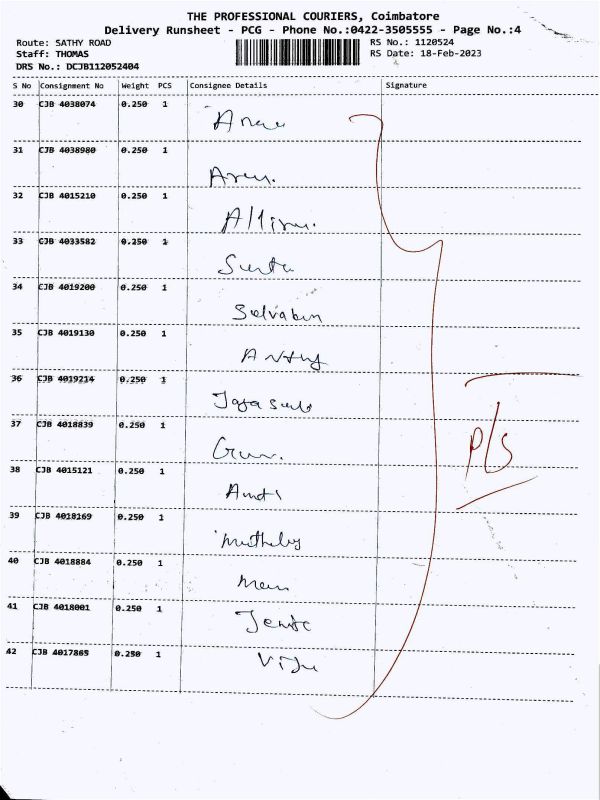 THE PROFESSIONAL COURIERS, Coimbatore
Delivery Runsheet - PCG - Phone No.:0422-3505555 - Page No.:4
Route: SATHY ROAD RS No.: 1120524
Staff: THOMAS RS Date: 18-Feb-2023
DRS No.: DCJB112052404
S No Consignment No Weight PCS Consignee Details Signature
30 CJB 4038074 0.250 1
31 CJB 4038980 0.250 1
Arun.
32 CJB 4015210 0.250 1
33 CJB 4033582 0.250 1
34 CJB 4019200 0.250 1
35 CJB 4019130 0.250 1
36 CJB 4019214 0.250 1
37 CJB 4018839 0.250 1
P/S
38 CJB 4015121 0.250 1
39 CJB 4018169 0.250 1
40 CJB 4018884 0.250 1
41 CJB 4018001 0.250 1
42 CJB 4017865 0.250 1